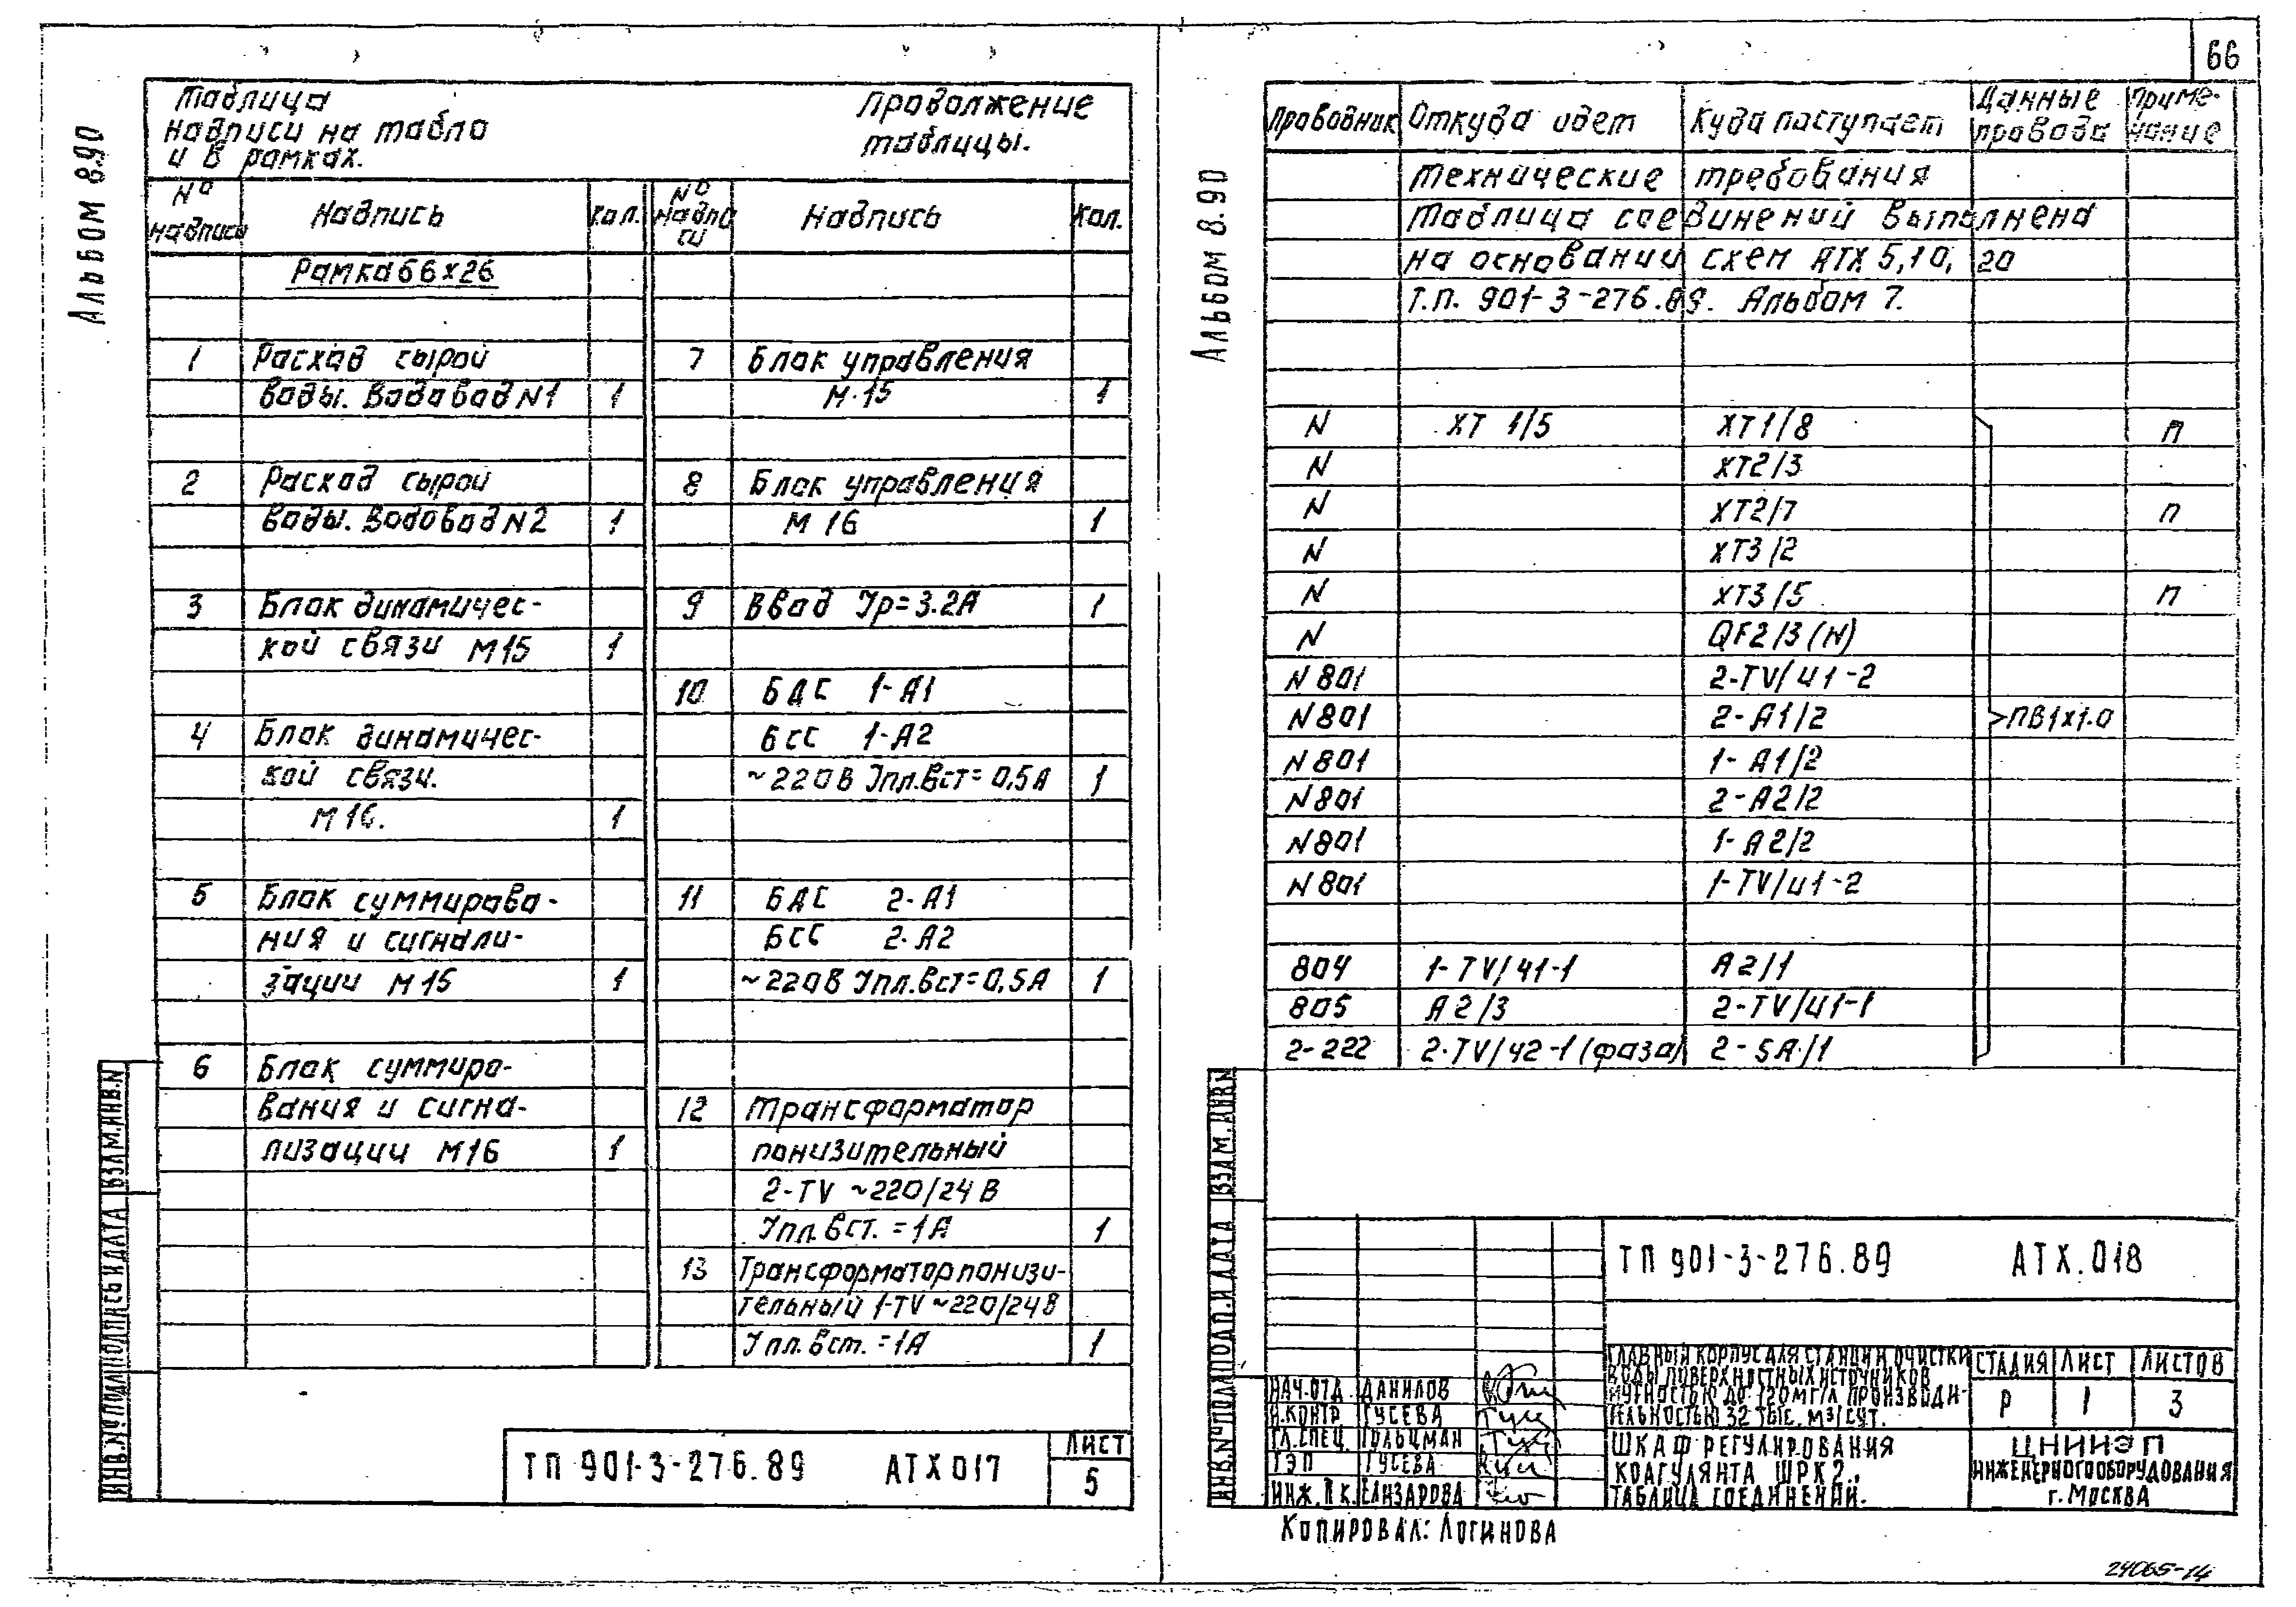 66
Альбом 8.90
Таблица
надписи на табло
и в рамках.
Продолжение
таблицы.
№ надписи Надпись Кол. № надписи Надпись Кол.
Рамка 66х26
1 Расход сырой
воды. Водовод N1 1
2 Расход сырой
воды. Водовод N2 1
3 Блок динамичес-
кой связи М15 1
4 Блок динамичес-
кой связи.
М16. 1
5 Блок суммирова-
ния и сигнали-
зации М15 1
6 Блок суммиро-
вания и сигна-
лизации М16 1
7 Блок управления
М·15 1
8 Блок управления
М 16 1
9 Ввод Iр=3.2А 1
10 БДС 1-А1
БСС 1-А2
~220В Iпл.вст=0,5А 1
11 БДС 2-А1
БСС 2-А2
~220В Iпл.вст=0,5А 1
12 Трансформатор
понизительный
2-TV ~220/24 В
Iпл.вст.=1А 1
13 Трансформатор понизи-
тельный 1-TV ~220/24В
Iпл.вст.=1А 1
ИНВ.№ ПОДЛ ПОДПИСЬ И ДАТА ВЗАМ.ИНВ.N
ТП 901-3-276.89 АТХ 017
ЛИСТ
5
Альбом 8.90
Проводник Откуда идет Куда поступает Данные провода Примечание
Технические требования
Таблица соединений выполнена
на основании схем АТХ 5,10, 20
Т.П. 901-3-276.89. Альбом 7.
N ХТ 1/5 ХТ1/8 П
N ХТ2/3
N ХТ2/7 П
N ХТ3/2
N ХТ3/5 П
N QF2/3(N)
N801 2-TV/И1-2
N801 2-А1/2 ПВ1х1.0
N801 1-А1/2
N801 2-А2/2
N801 1-А2/2
N801 1-TV/И1-2
804 1-TV/И1-1 А2/1
805 А2/3 2-TV/И1-1
2-222 2-TV/И2-1(фаза) 2-SA/1
ИНВ.№ ПОДЛ ПОДП.И ДАТА ВЗАМ.ИНВ.N
ТП 901-3-276.89 АТХ.018
ГЛАВНЫЙ КОРПУС ДЛЯ СТАНЦИИ ОЧИСТКИ
ВОДЫ ПОВЕРХНОСТНЫХ ИСТОЧНИКОВ
МУТНОСТЬЮ ДО 120МГ/Л ПРОИЗВОДИ-
ТЕЛЬНОСТЬЮ 32 ТЫС. М³/СУТ.
СТАДИЯ ЛИСТ ЛИСТОВ
Р 1 3
НАЧ.ОТД. ДАНИЛОВ
Н.КОНТР. ГУСЕВА
ГЛ.СПЕЦ. ГОЛЬЦМАН
ГЭП ГУСЕВА
ИНЖ. II К. ЕЛИЗАРОВА
ШКАФ РЕГУЛИРОВАНИЯ
КОАГУЛЯНТА ШРК2.
ТАБЛИЦА СОЕДИНЕНИЙ.
ЦНИИЭП
ИНЖЕНЕРНОГО ОБОРУДОВАНИЯ
г. МОСКВА
КОПИРОВАЛ: ЛОГИНОВА
24065-14